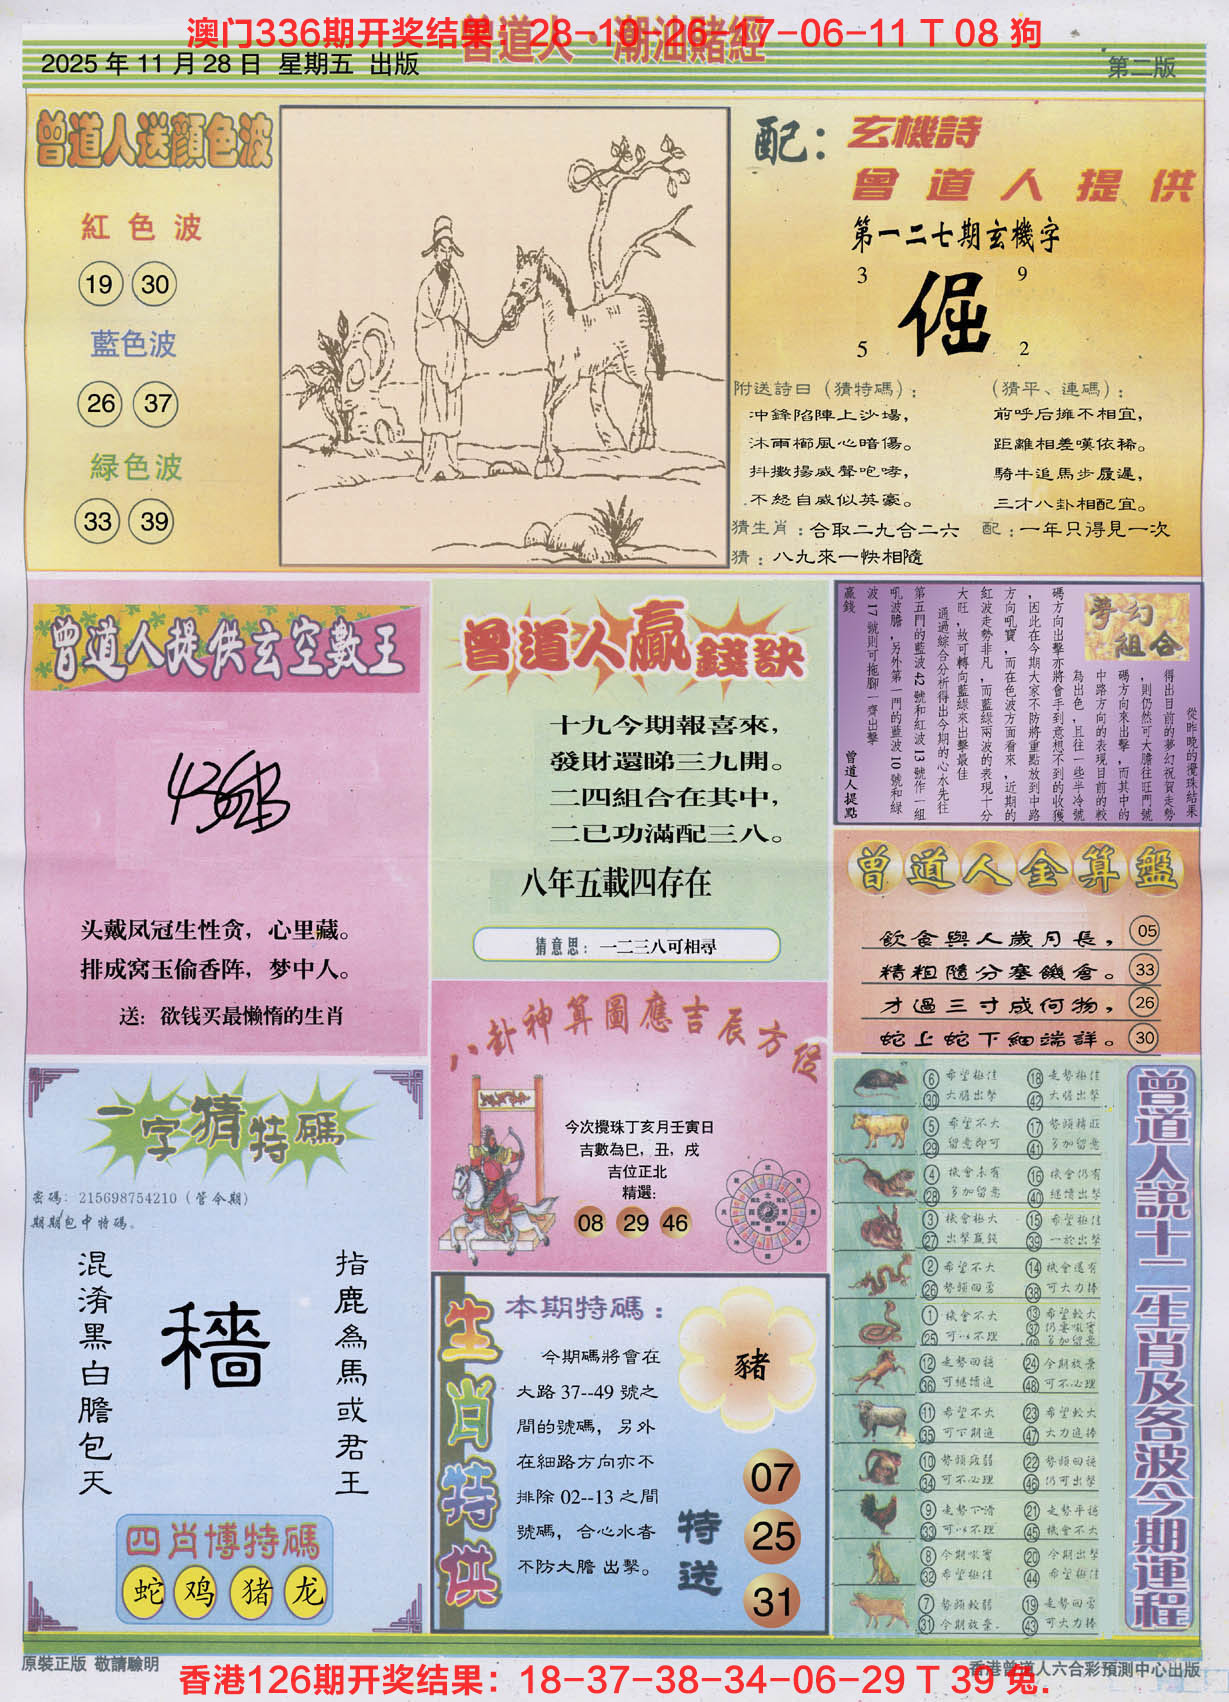 澳门336期开奖结果：28-10-26-17-06-11 T 08 狗
曾道人·潮汕賭經
2025 年 11 月 28 日 星期五 出版
第二版
曾道人送顔色波
紅色波
19 30
藍色波
26 37
緑色波
33 39
配：
玄機詩
曾道人提供
第一二七期玄機字
3 9
倔
5 2
附送詩曰（猜特碼）：
冲鋒陷陣上沙場，
沐雨櫛風心暗傷。
抖擻揚威聲咆哮，
不怒自威似英豪。
（猜平、連碼）：
前呼后擁不相宜，
距離相差嘆依稀。
騎牛追馬步履遲，
三才八卦相配宜。
猜生肖：合取二九合二六
配：一年只得見一次
猜：八九來一快相隨
曾道人提供玄空數王
头戴凤冠生性贪，心里藏。
排成窝玉偷香阵，梦中人。
送：欲钱买最懒惰的生肖
曾道人贏錢訣
十九今期報喜來，
發財還睇三九開。
二四組合在其中，
二已功滿配三八。
八年五載四存在
猜意思：一二三八可相尋
夢幻組合
從昨晚的攪珠結果
得出目前的夢幻祝賀走勢
，則仍然可大膽往旺門號
碼方向來出擊，而其中的
中路方向的表現目前的較
為出色，且往一些半冷號
碼方向出擊亦將會手到意想不到的收獲
，因此在今期大家不防將重點放到中路
方向吼寶，而在色波方面看來，近期的
紅波走勢非凡，而藍綠兩波的表現十分
大旺，故可轉向藍綠來出擊最佳
通過綜合分析得出今期的心水先往
第五門的藍波42號和紅波13號作一組
吼波膽，另外第一門的藍波10號和綠
波17號則可拖腳一齊出擊
贏錢
曾道人提點
曾道人金算盤
飲食與人歲月長， 05
精粗隨分塞饑倉。 33
才過三寸成何物， 26
蛇上蛇下細端詳。 30
八卦神算圖應吉辰方位
今次攪珠丁亥月壬寅日
吉數為巳，丑，戌
吉位正北
精選：
08 29 46
一字猜特碼
密碼：215698754210（管今期）
期期包中特碼。
混淆黑白膽包天
穡
指鹿為馬或君王
四肖博特碼
蛇 鸡 猪 龙
生肖特供
本期特碼：
今期碼將會在
大路 37--49 號之
間的號碼，另外
在細路方向亦不
排除 02--13 之間
號碼，合心水者
不防大膽 出擊。
豬
特送
07
25
31
曾道人説十二生肖及各波今期運程
6 希望極佳 18 走勢極佳
30 大膽出擊 42 大膽出擊
5 希望不大 17 勢頭精旺
29 留意即可 41 多加留意
4 機會未有 16 機會仍有
28 多加留意 40 繼續出擊
3 機會極大 15 希望極佳
27 出擊贏錢 39 一於出擊
2 希望不大 14 機會還有
26 勢頭回勇 38 可大力捧
1 機會不大 13 希望較大
25 可以不理 37 仍要吼實
49 多加留意
12 走勢回穩 24 今期放棄
36 可繼續追 48 可不必理
11 希望不大 23 希望較大
35 可下期追 47 大力追捧
10 勢頭疲弱 22 勢頭回穩
34 可不必理 46 仍可出擊
9 走勢下滑 21 走勢平穩
33 可以不理 45 機會不大
8 今期吼實 20 今期出擊
32 希望極佳 44 希望極佳
7 勢頭較弱 19 走勢回勇
31 今期放棄. 43 可大力捧
原裝正版 敬請驗明
香港126期开奖结果：18-37-38-34-06-29 T 39 兔.
香港曾道人六合彩預測中心出版